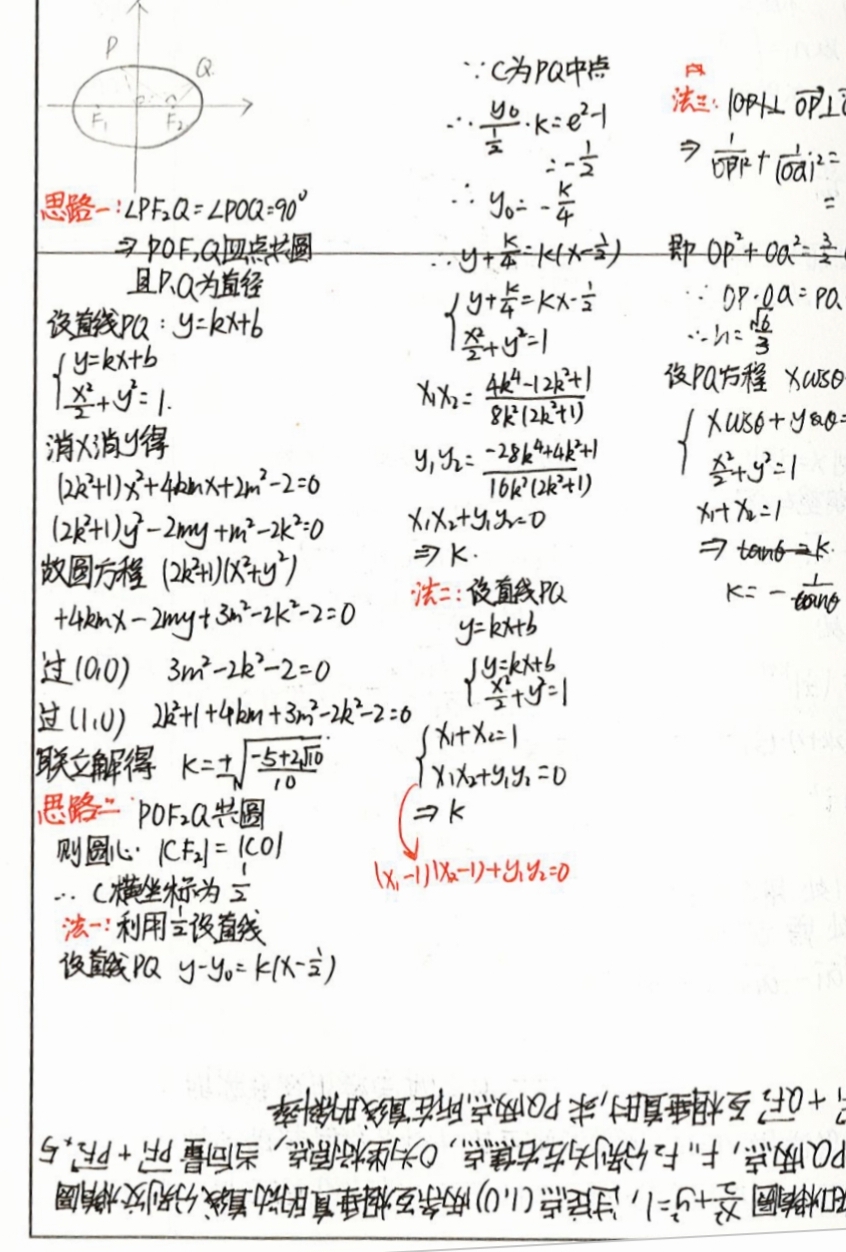 P
Q
F₁
F₂
思路一:∠PF₂Q=∠POQ=90°
⇒ POF₂Q四点共圆
且P.Q为直径
设直线PQ:y=kx+b
{ y=kx+b
x²/2+y²=1.
消x消y得
(2k²+1)x²+4kmx+2m²-2=0
(2k²+1)y²-2my+m²-2k²=0
故圆方程 (2k²+1)(x²+y²)
+4kmx-2my+3m²-2k²-2=0
过(0,0) 3m²-2k²-2=0
过(1,0) 2k²+1+4km+3m²-2k²-2=0
联立解得 K=±√((-5+2√10)/10)
思路二 POF₂Q共圆
则圆心 |CF₂|=|CO|
∴ C横坐标为 1/2
法一:利用1/2设直线
设直线PQ y-y₀=k(x-1/2)
∵ C为PQ中点
∴ y₀/(1/2)·k=e²-1
=-1/2
∴ y₀=-k/4
∴ y+k/4=k(x-1/2)
{ y+k/4=kx-1/2
x²/2+y²=1
x₁x₂=(4k⁴-12k²+1)/(8k²(2k²+1))
y₁y₂=(-28k⁴+4k²+1)/(16k²(2k²+1))
x₁x₂+y₁y₂=0
⇒ K.
法二:设直线PQ
y=kx+b
{ y=kx+b
x²/2+y²=1
{ x₁+x₂=1
x₁x₂+y₁y₂=0
⇒ K
(x₁-1)(x₂-1)+y₁y₂=0
法三: |OP|⊥ OP⊥
⇒ 1/|OP|²+1/|OQ|²=
=
即 OP²+OQ²=3/2
∵ OP·OQ=PQ.
∴h=√6/3
设PQ方程 xcosθ
{ xcosθ+ysinθ=
x²/2+y²=1
x₁+x₂=1
⇒ tanθ=k.
K=-1/tanθ
椭圆x²/2+y²=1,过定点(1,0)两条互相垂直的动直线分别交椭圆
PQ两点,F₁,F₂分别为左右焦点,O为坐标原点,当向量PF₁+PF₂与
+QF₂互相垂直时,求PQ两点所在直线的斜率